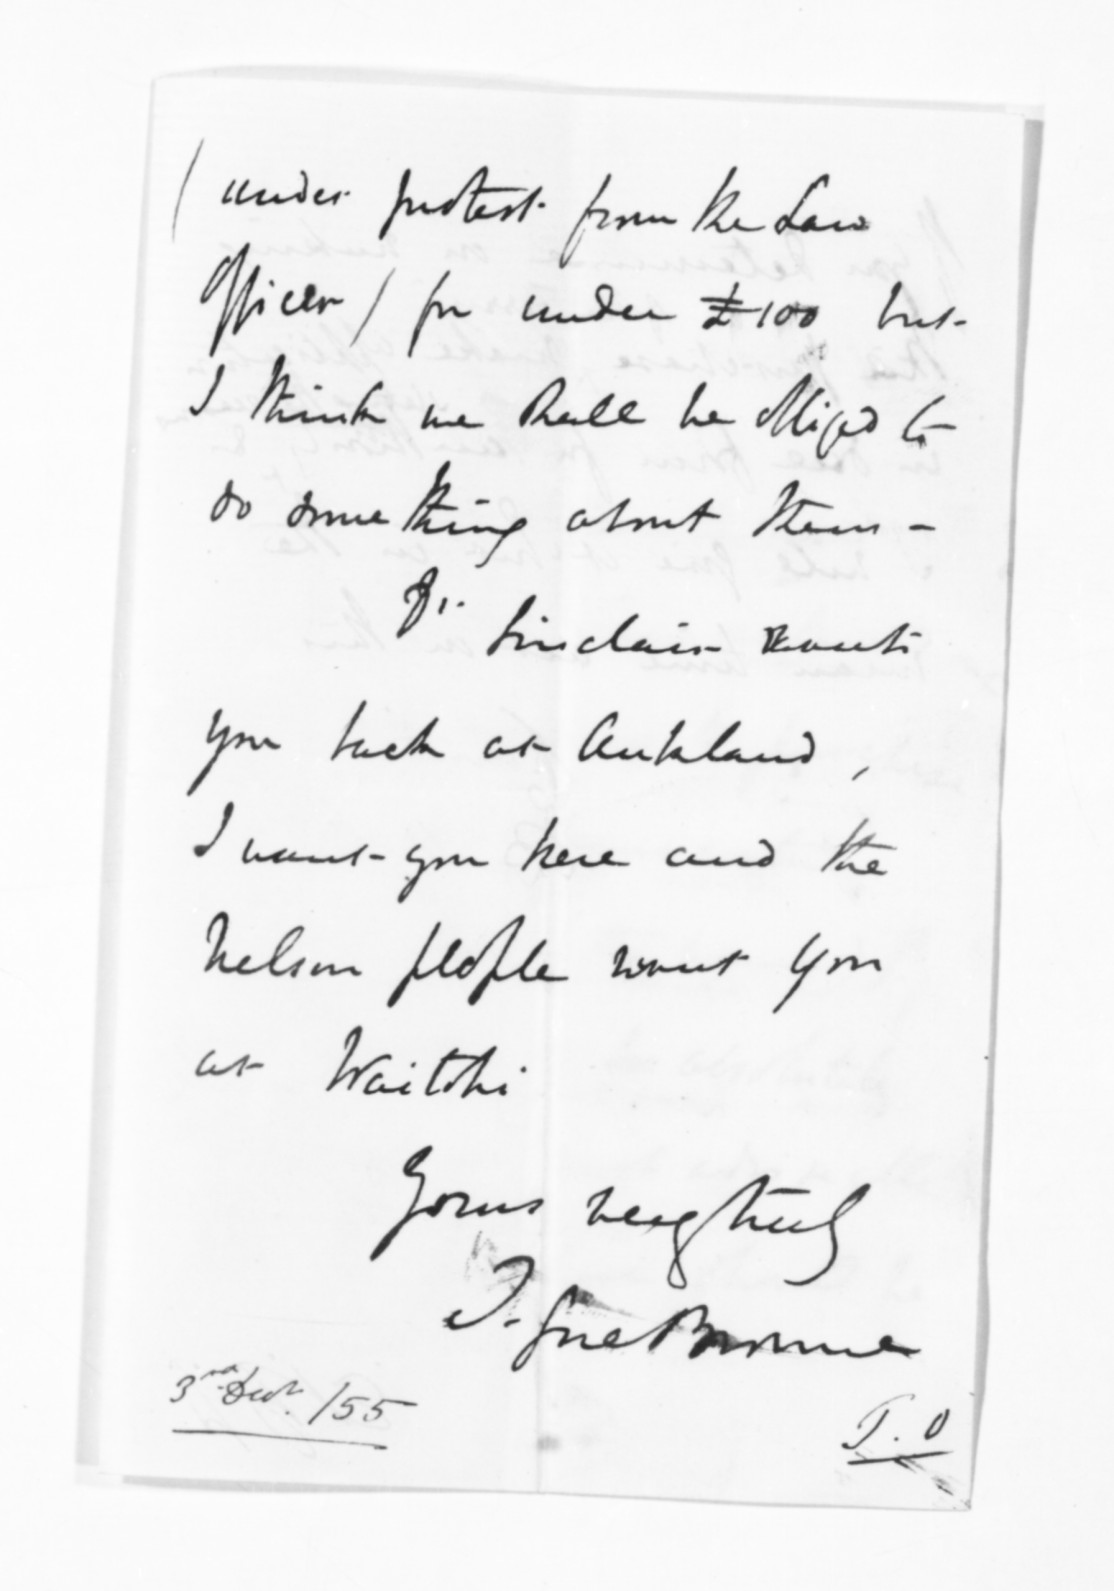 (under protest from the Law
Officer) for under £100 but
I think we shall be obliged to
do something about them -
Dr. Sinclair wants
you back at Auckland,
I want you here and the
Nelson people want you
at Waitohi
Yours very truly
T. Gore Browne
3rd /55
T.O